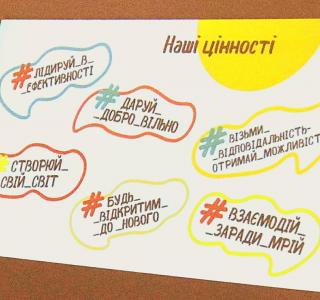 Наші цінності
#ЛІДИРУЙ_В_
_ЕФЕКТИВНОСТІ
#ДАРУЙ_
_ДОБРО_ВІЛЬНО
#ВІЗЬМИ_
_ВІДПОВІДАЛЬНІСТЬ-
ОТРИМАЙ_МОЖЛИВІСТ
#СТВОРЮЙ_
СВІЙ_СВІТ
#БУДЬ_
_ВІДКРИТИМ_
_ДО_НОВОГО
#ВЗАЄМОДІЙ_
_ЗАРАДИ_МРІЙ